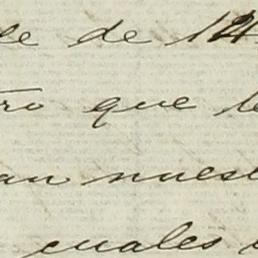 de de 14
tro que le
an nuest
cuales